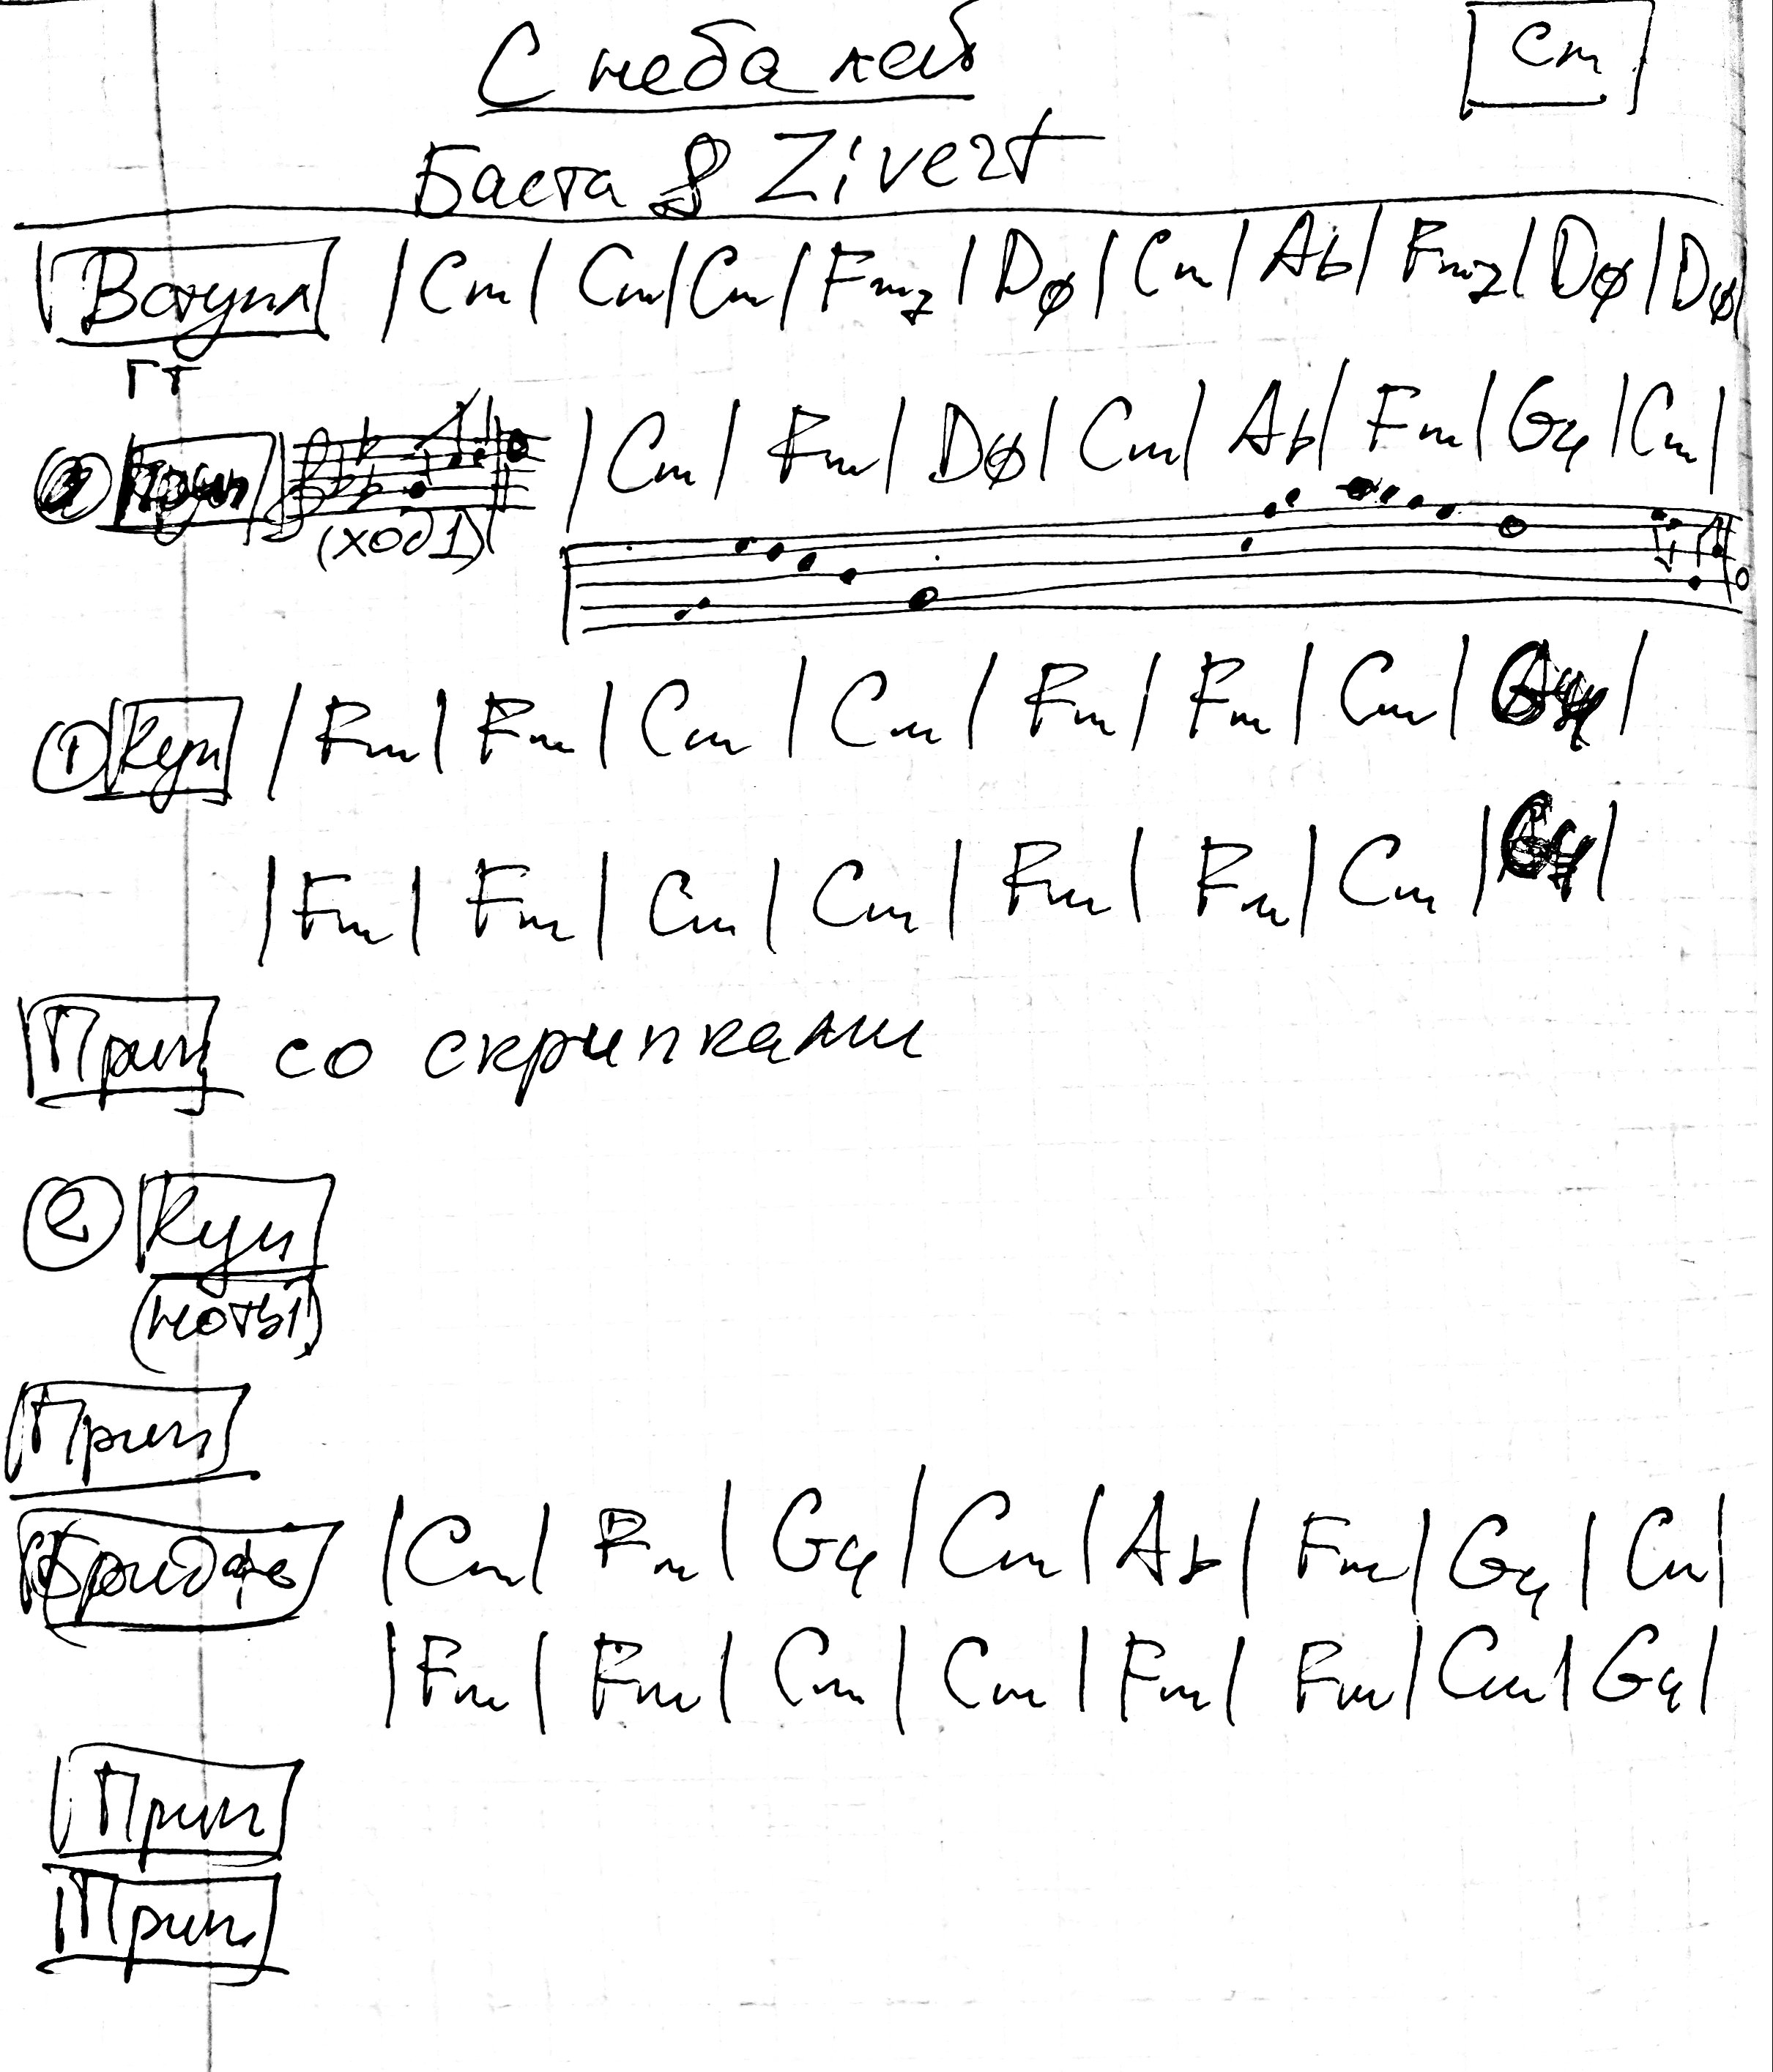 С неба лей
Cm
Баста & Zivert
Вступл | Cm | Cm | Cm | Fm7 | Dø | Cm | Ab | Fm7 | Dø | Dø |
гт
(ход 1) | Cm | Fm | Dø | Cm | Ab | Fm | G4 | Cm |
① Куп | Fm | Fm | Cm | Cm | Fm | Fm | Cm | G4 |
| Fm | Fm | Cm | Cm | Fm | Fm | Cm | G4 |
Прип со скрипками
② Куп
(ноты)
Прип
Бридж | Cm | Fm | G4 | Cm | Ab | Fm | G4 | Cm |
| Fm | Fm | Cm | Cm | Fm | Fm | Cm | G4 |
Прип
Прип